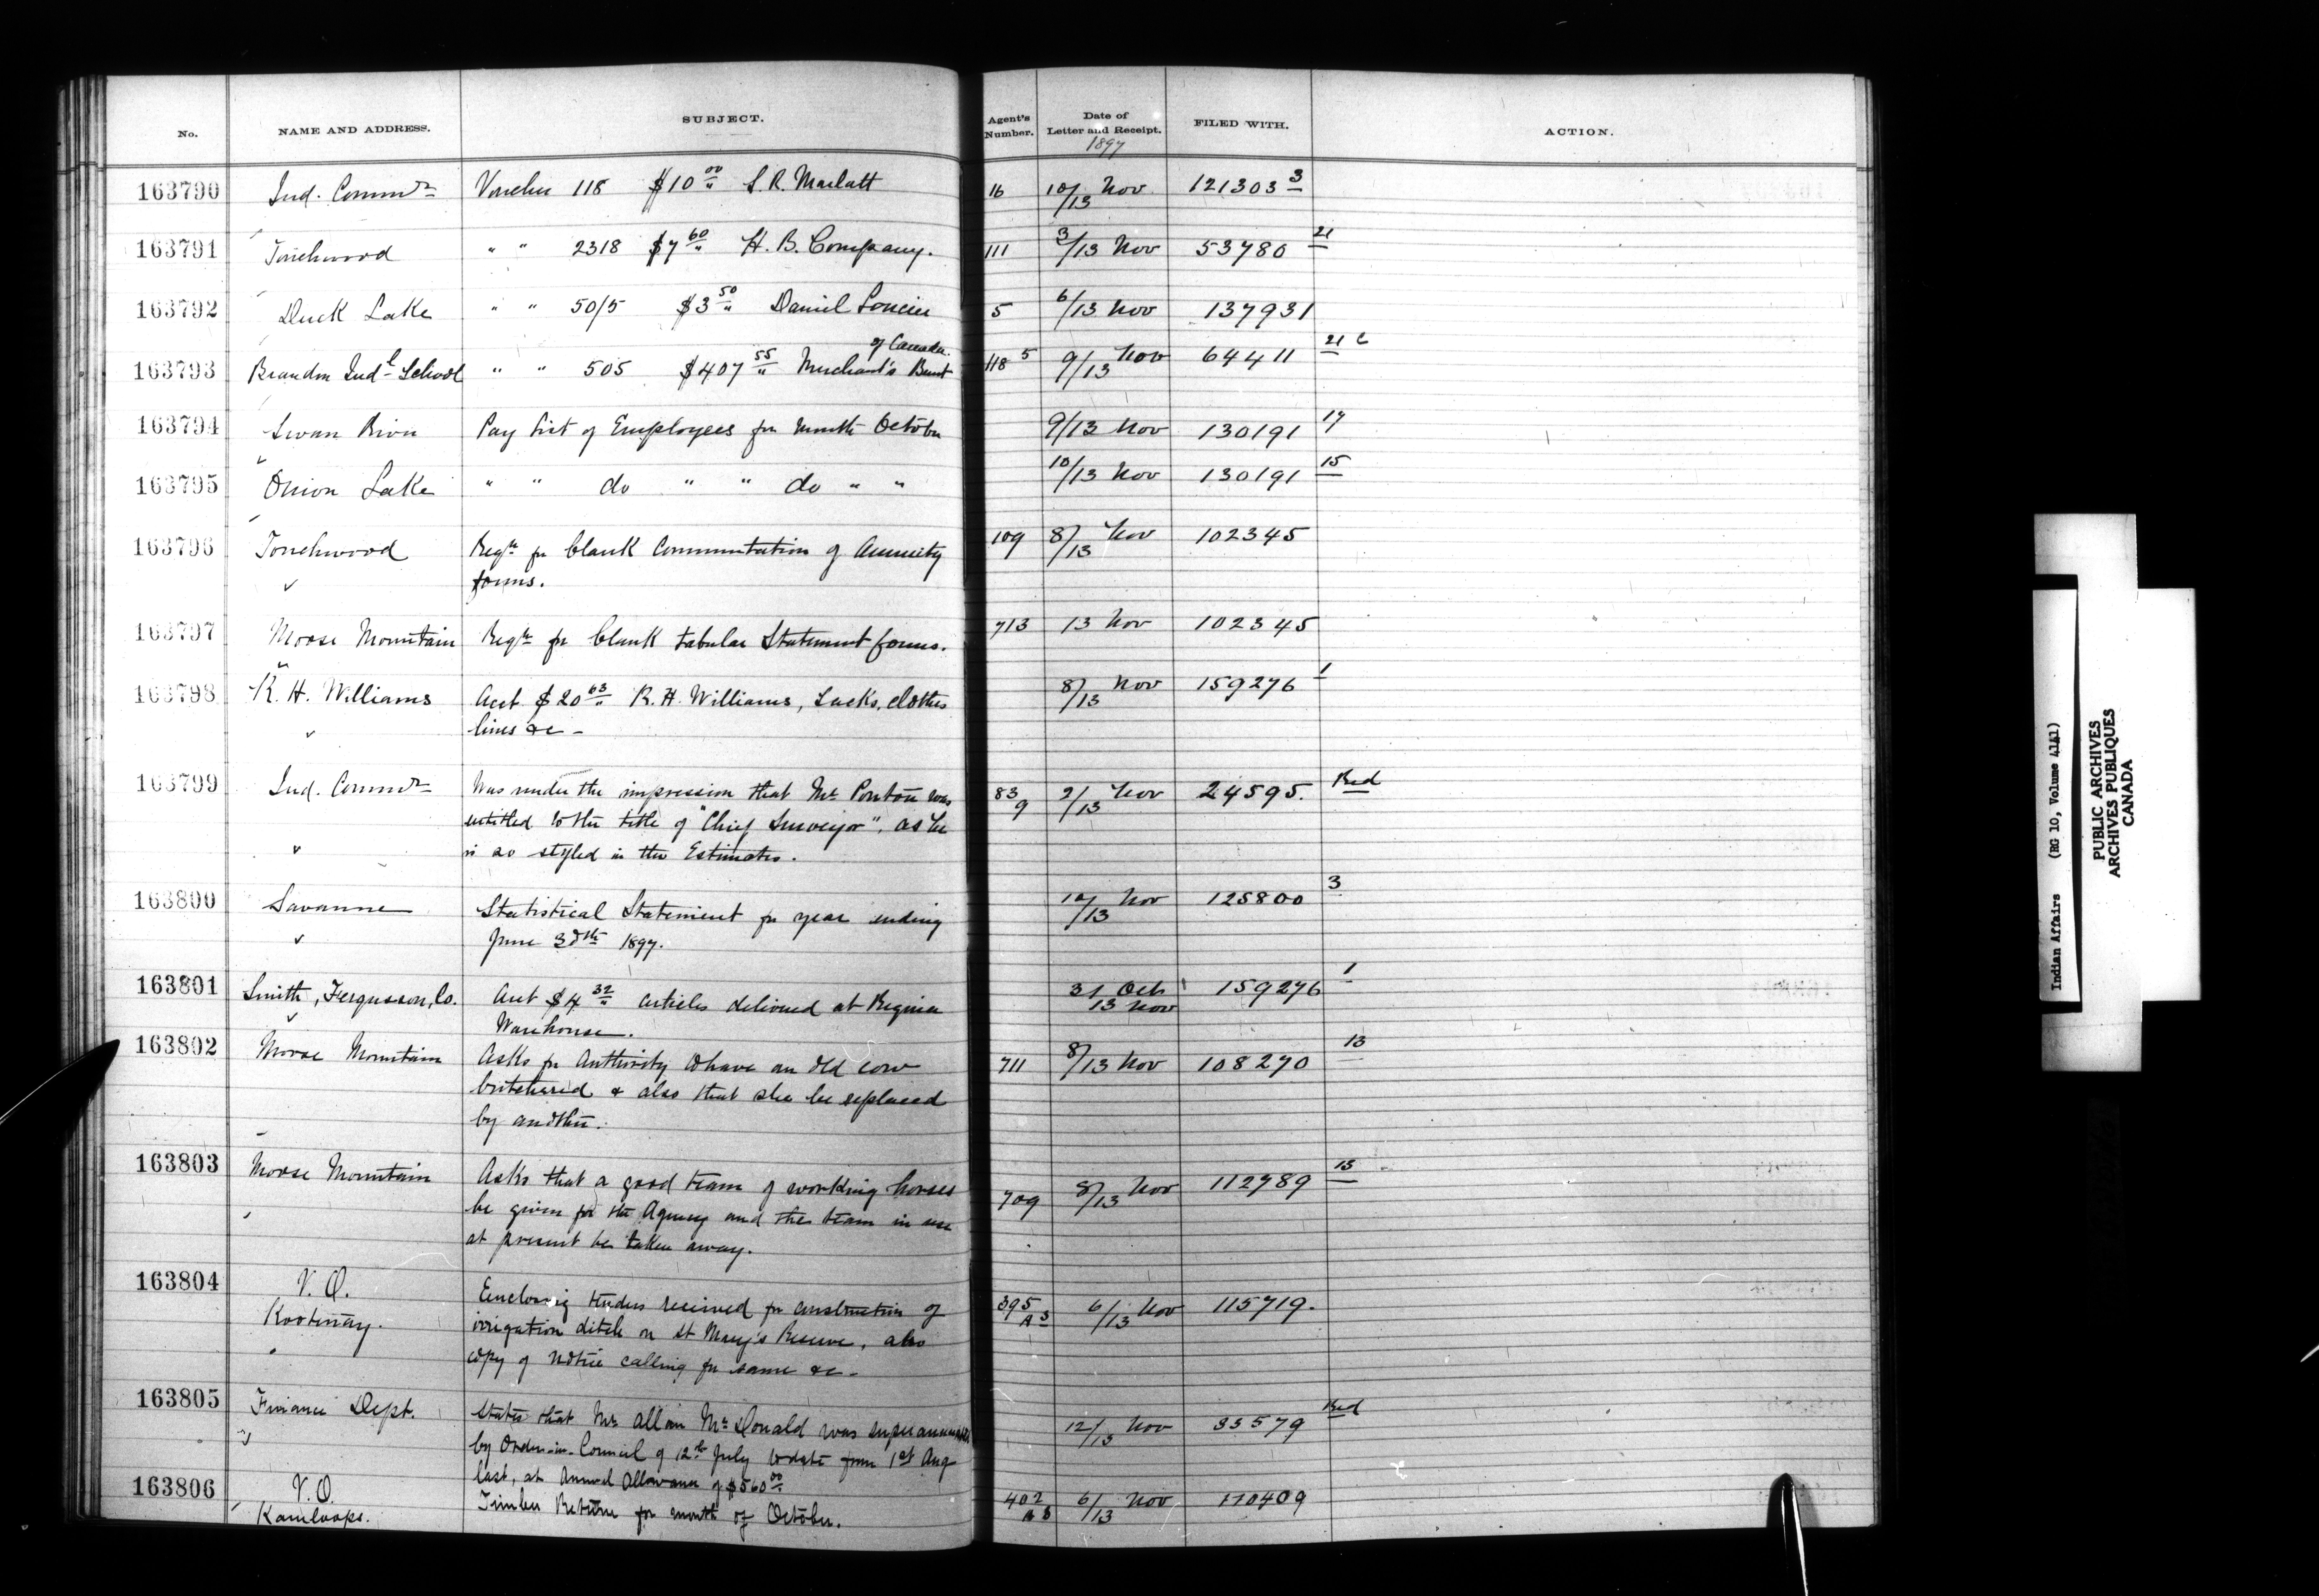 No. NAME AND ADDRESS. SUBJECT. Agent's Number. Date of Letter and Receipt. 1897 FILED WITH. ACTION.
163790 Ind. Commr Voucher 118 $10 00 S. R. Marlatt 16 10/13 Nov 121303 3
163791 Touchwood " " 2318 $7 60 H. B. Company. 111 3/13 Nov 53780 21
163792 Duck Lake " " 50/5 $3 50 Daniel 5 6/13 Nov 137931
163793 Brandon Indl School " " 505 $407 55 Merchant's of Canada. 118 5 9/13 Nov 64411 21 c
163794 Swan River Pay List of Employees for Month October 9/13 Nov 130191 17
163795 Onion Lake " " do " " do " " 10/13 Nov 130191 15
163796 Touchwood Reqn for blank Commutation of Annuity 109 8/13 Nov 102345
forms.
163797 Moose Mountain Reqn for blank tabular Statement forms. 713 13 Nov 102345
163798 R. H. Williams Acct $20 63 R. H. Williams, Sacks, clothes 8/13 Nov 159276 1
lines &c -
163799 Ind. Commr Was under the impression that Mr Ponton was 83 9 2/13 Nov 24595. Red
entitled to the title of "Chief Surveyor", as he
is so styled in the Estimates.
163800 Savanne Statistical Statement for year ending 10/13 Nov 125800 3
June 30th 1897.
163801 Smith, Fergusson, Co. Acct $4 32 articles delivered at Regina 31 Oct 13 Nov 159276 1
Warehouse.
163802 Moose Mountain Asks for Authority to have an old cow 711 8/13 Nov 108270 13
butchered & also that she be replaced
by another.
163803 Moose Mountain Asks that a good team of working horses 709 8/13 Nov 112789 15
be given for the Agency and the team in use
at present be taken away.
163804 V. O. Enclosing tenders received for construction of 395 A 3 6/13 Nov 115719.
Kootenay. irrigation ditch on St Mary's Reserve, also
copy of notice calling for same &c -
163805 Finance Dept. States that Mr Allan McDonald was superannuated 12/13 Nov 33579 Red
by Order-in-Council of 12th July to date from 1st Aug
last, at Annual Allowance of $560 00
163806 V. O. Timber Return for month of October. 402 A 3 6/13 Nov 170409
Kamloops.
Indian Affairs (RG 10, Volume 4141)
PUBLIC ARCHIVES
ARCHIVES PUBLIQUES
CANADA